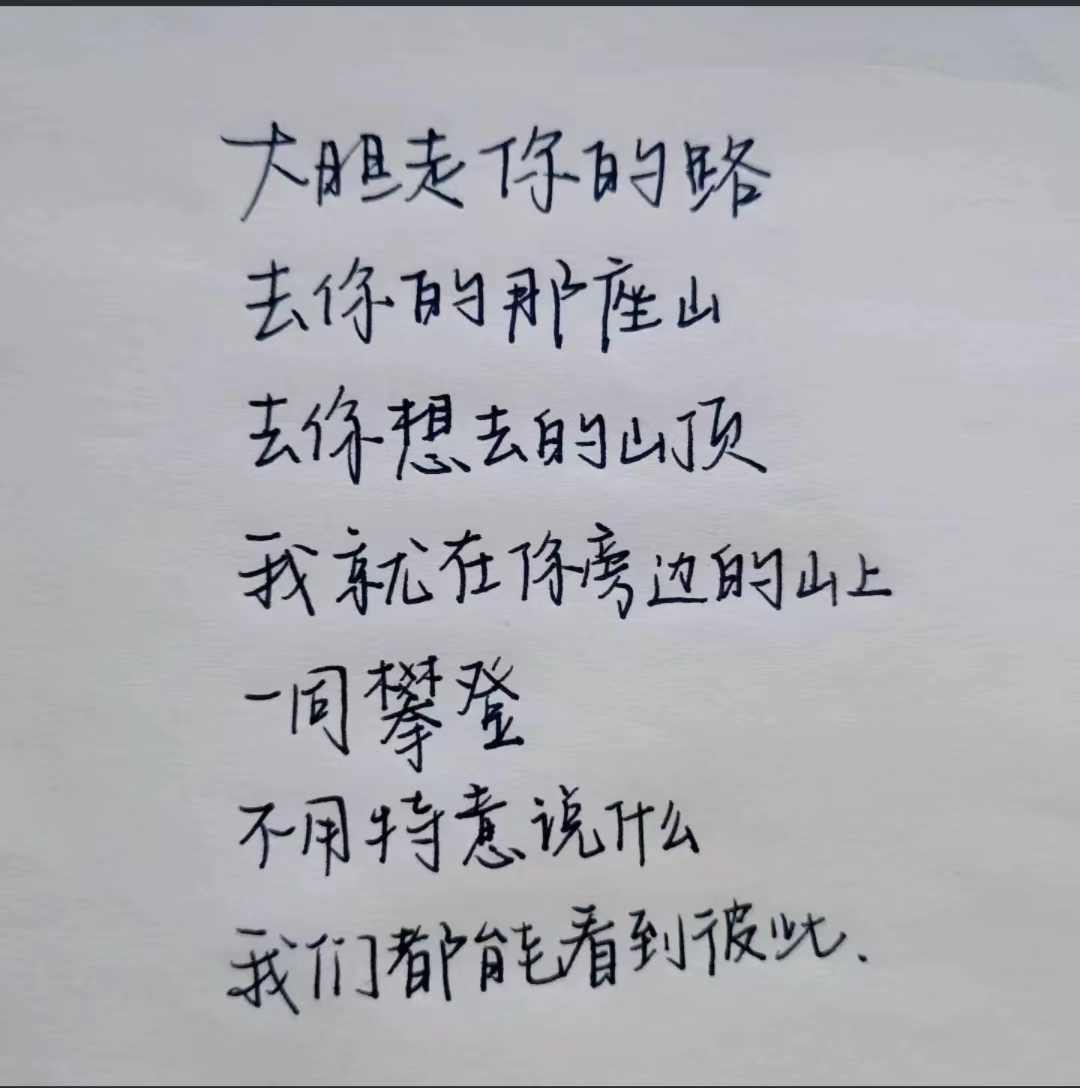 大胆走你的路
去你的那座山
去你想去的山顶
我就在你旁边的山上
一同攀登
不用特意说什么
我们都能看到彼此.